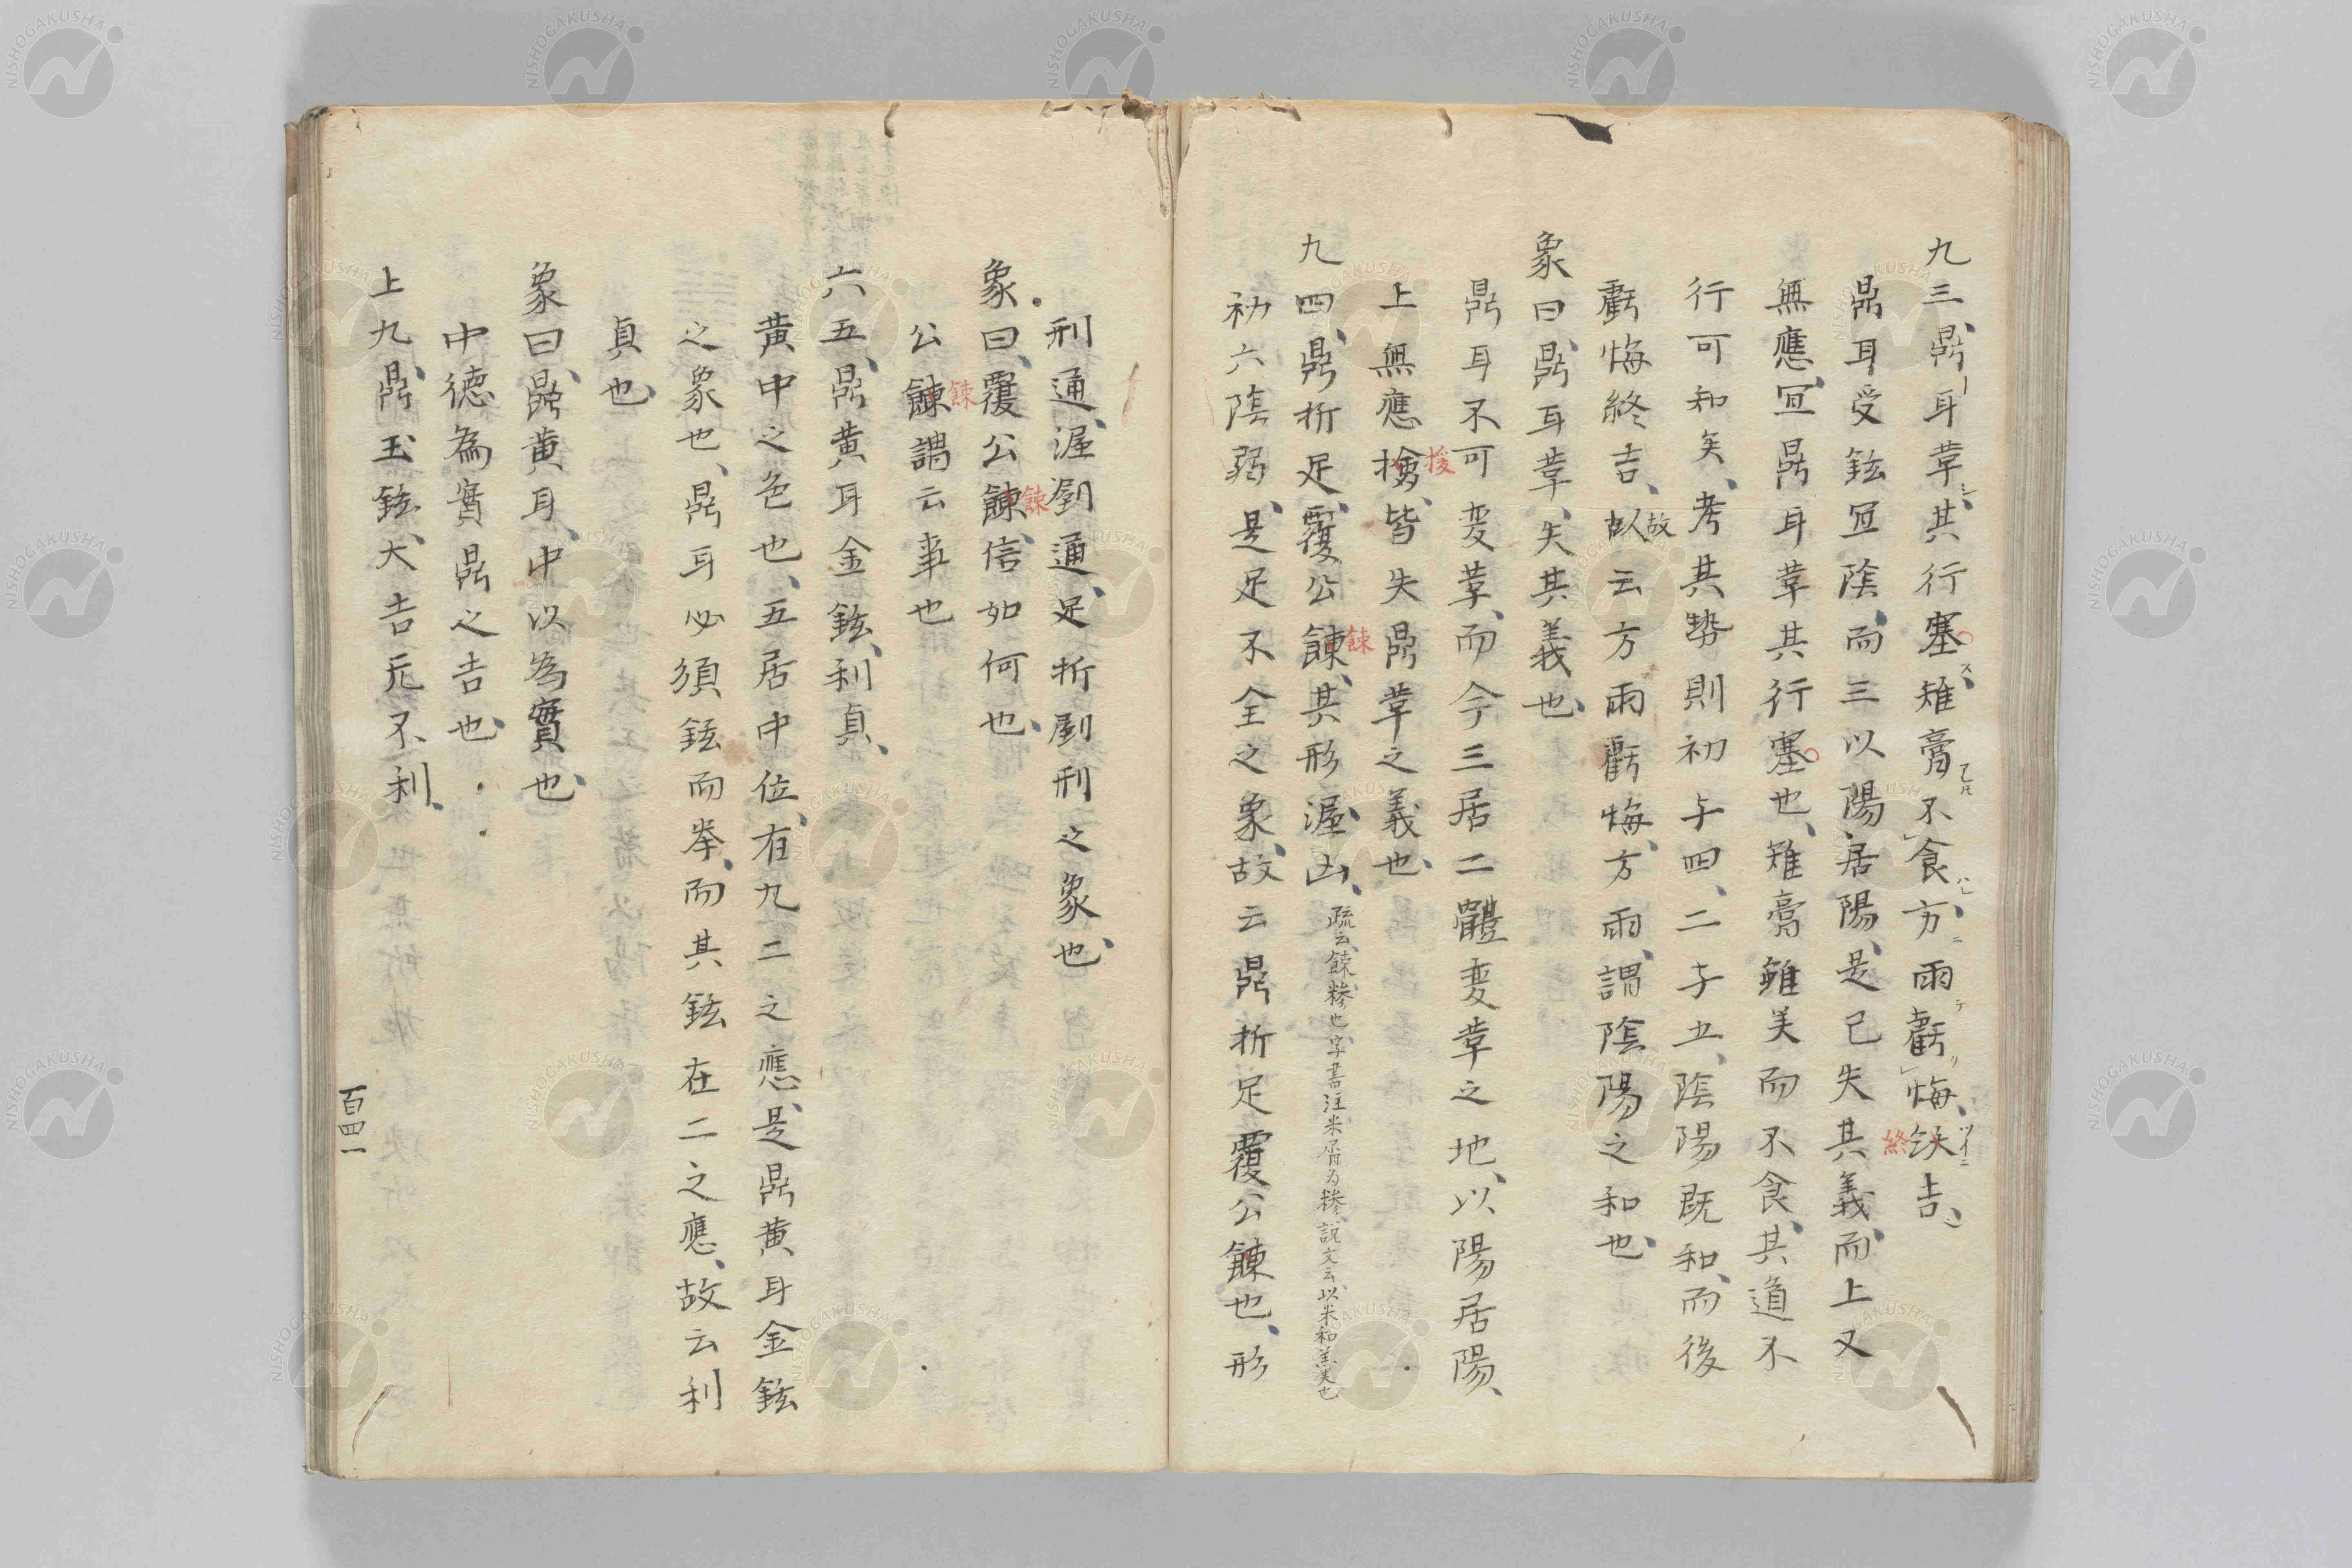 九三、鼎耳革、其行塞、雉膏不食、方雨虧悔、終吉、
鼎耳受鉉冝陰、而三以陽居陽、是已失其義、而上又
無應、冝鼎耳革其行塞也、雉膏雖美而不食、其道不
行可知矣、考其勢則初与四、二与五、陰陽既和、而後
虧悔終吉、故云方雨虧悔、方雨、謂陰陽之和也、
象曰、鼎耳革、失其義也、
鼎耳不可変革、而今三居二體変革之地、以陽居陽、
上無應援、皆失鼎革之義也、
九四、鼎折足、覆公餗、其形渥、凶、
疏云、餗糝也字書注米屑为糝、説文云、以米和羹也
初六陰弱、是足不全之象、故云鼎折足覆公餗也、形
刑通、渥劉通、足折劉刑之象也、
象曰、覆公餗、信如何也、
公餗謂云事也
六五、鼎黄耳金鉉、利貞、
黄中之色也、五居中位、有九二之應、是鼎黄耳金鉉
之象也、鼎耳必須鉉而挙、而其鉉在二之應、故云利
貞也、
象曰、鼎黄耳、中以為實也、
中徳為實鼎之吉也、
上九、鼎玉鉉、大吉旡不利、
百四一
NISHOGAKUSHA